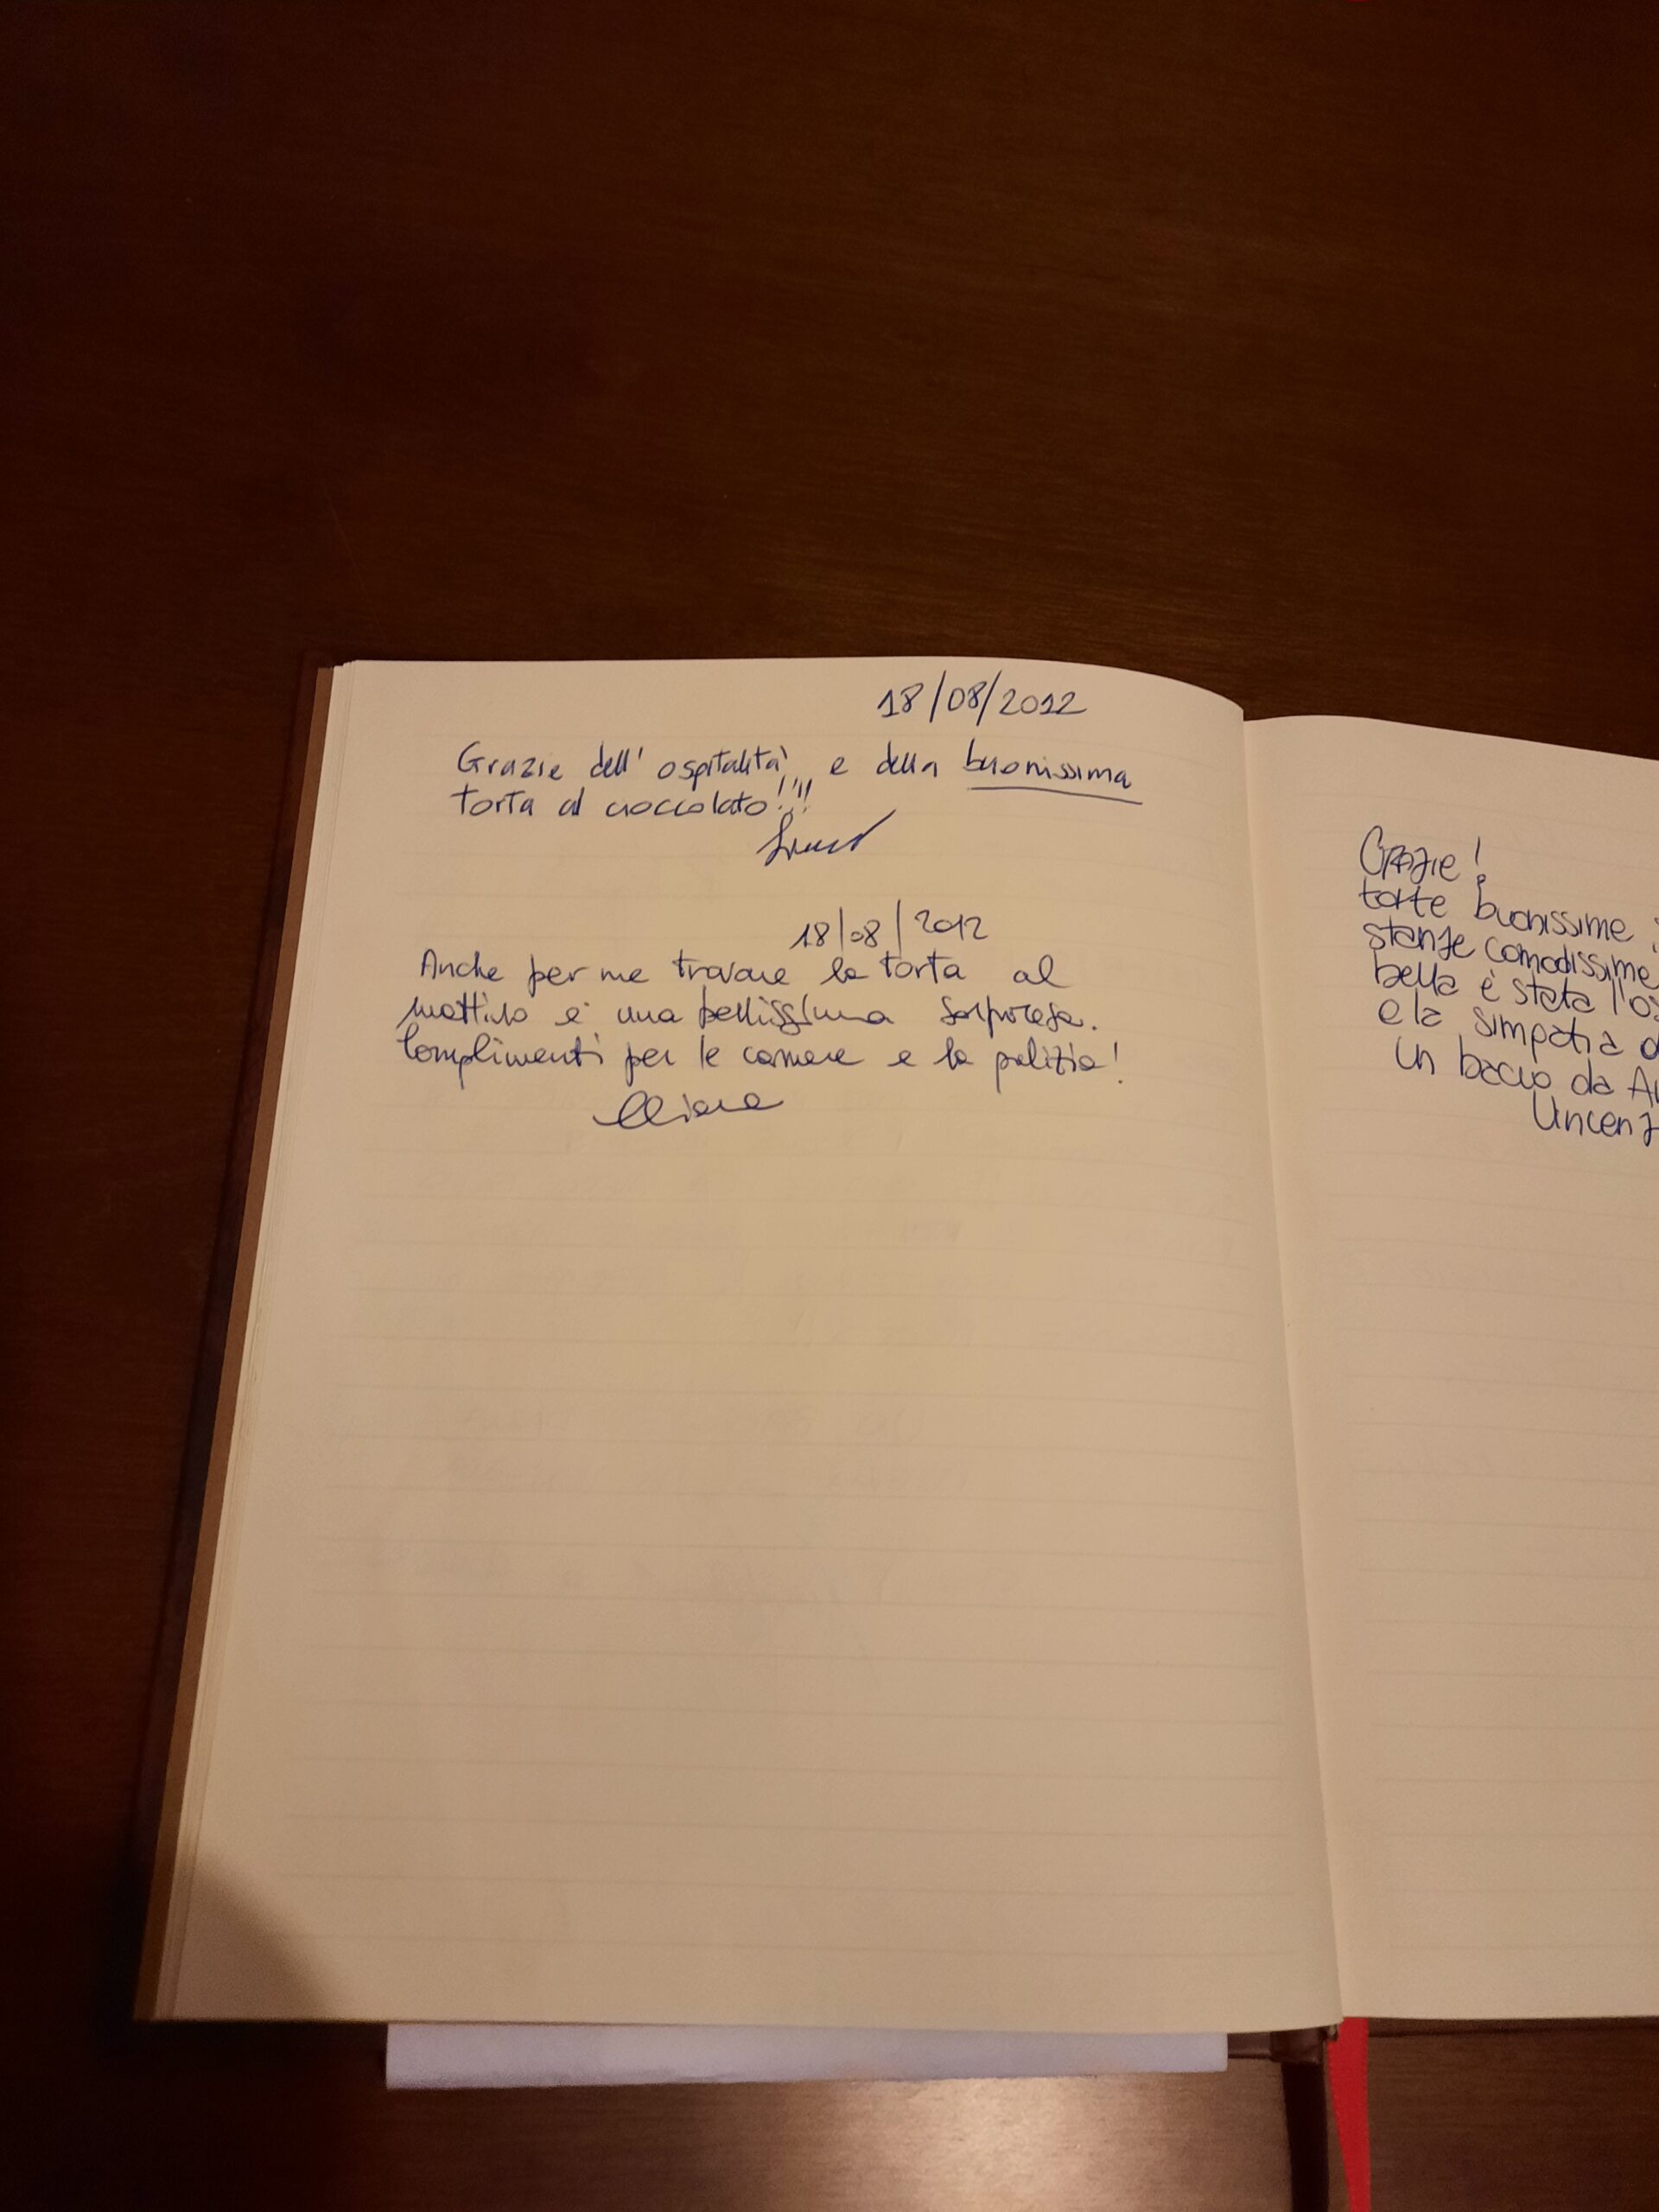 18/08/2012
Grazie dell' ospitalità e della buonissima
torta al cioccolato!!!!
18/08/2012
Anche per me trovare la torta al
mattino è una bellissima sorpresa.
Complimenti per le camere e la pulizia!
Grazie!
torte buonissime
stanze comodissime
bella è stata l'os
e la simpatia d
Un bacio da
Vincenz